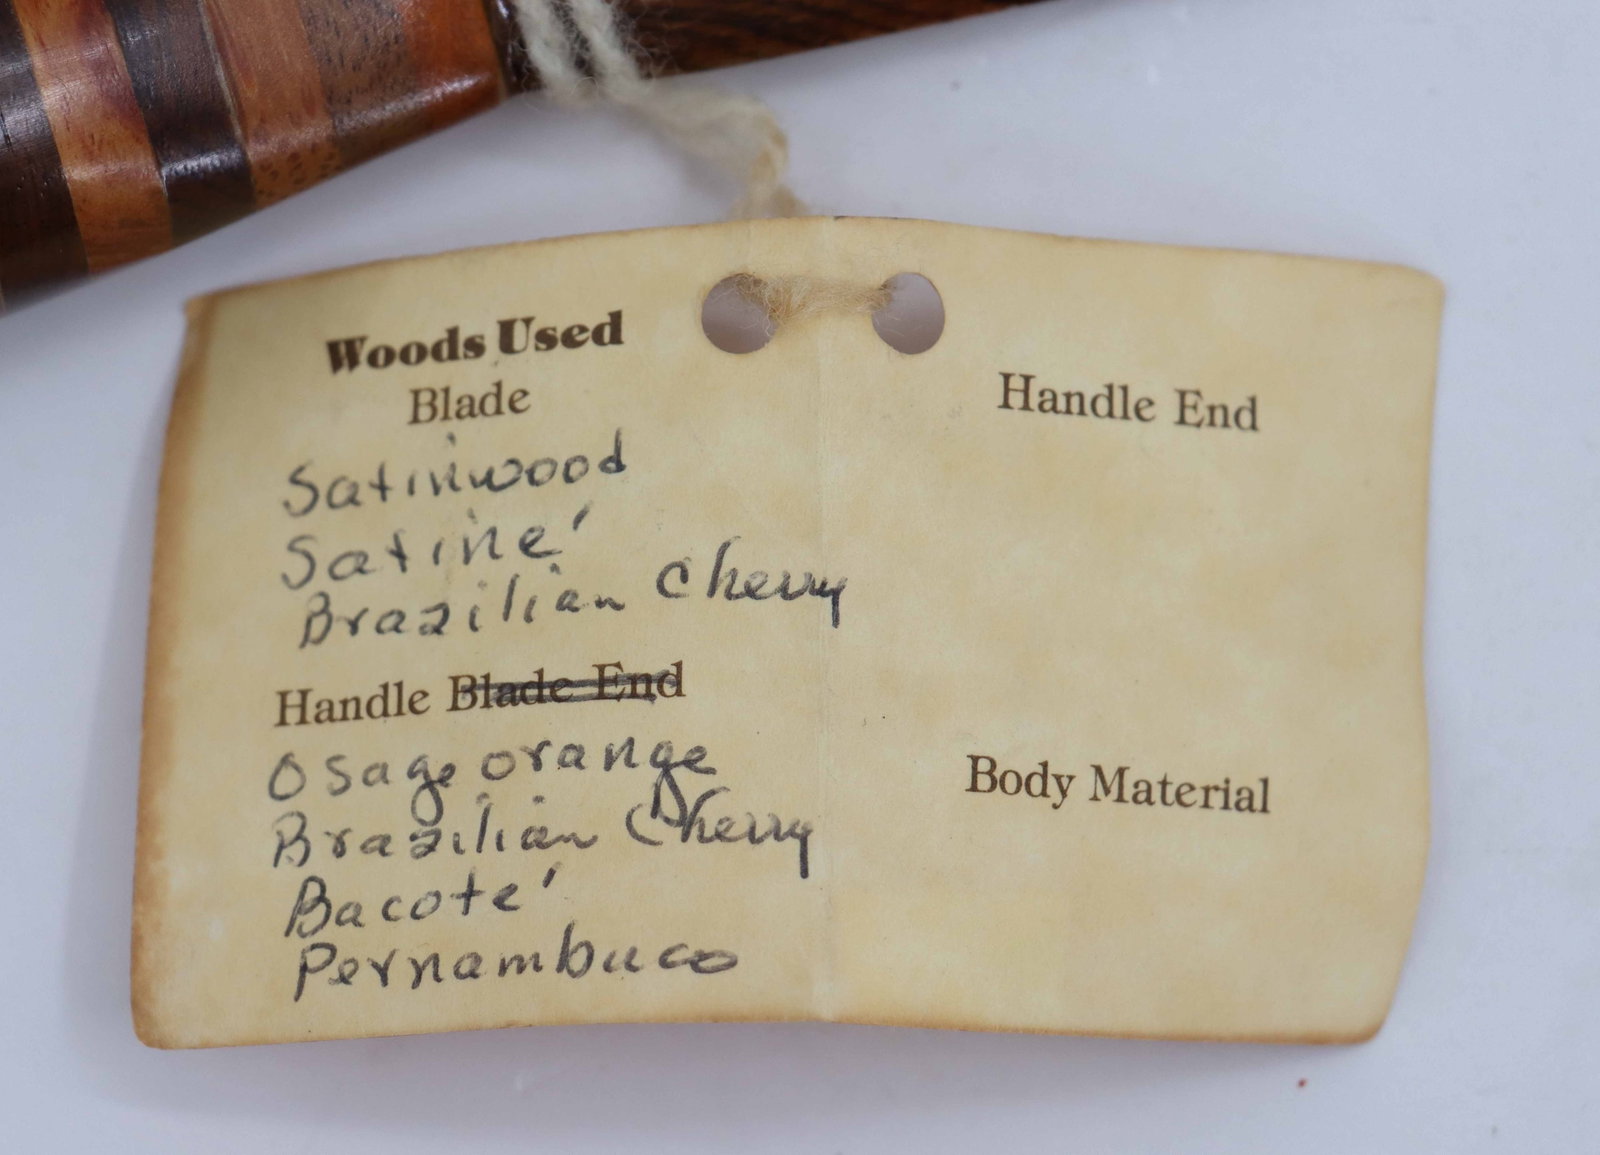 Woods Used
Blade
Satinwood
Satine'
Brazilian Cherry
Handle Blade End
Osage orange
Brazilian Cherry
Bacote'
Pernambuco
Handle End
Body Material